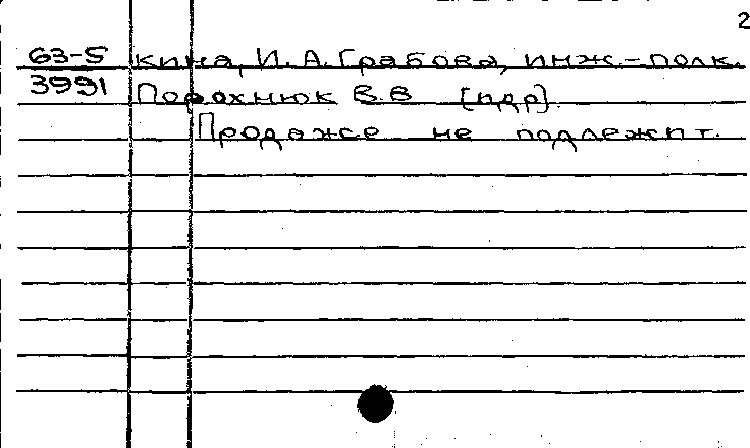 2
63-5 кина, И. А. Грабова, инж.-полк.
3991 Порохнюк В.В [идр].
Продаже не подлежит.